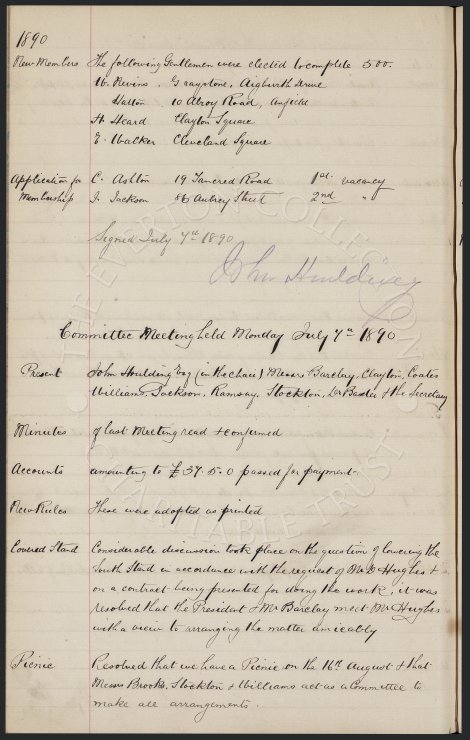 1890
New Members The following Gentlemen were elected to complete 500.
W. Nevins . Graystone, Aigburth Drive
Hatton 10 Alroy Road, Anfield
H Heard Clayton Square
E. Walker Cleveland Square
Application for C. Ashton 19 Tancred Road 1st vacancy
Membership J. Jackson 86 Aubrey Street 2nd "
Signed July 7th 1890
John Houlding
Committee Meeting held Monday July 7th 1890
Present John Houlding Esq (in the chair) Messrs Barclay, Clayton, Coates
Williams, Jackson, Ramsay, Stockton, Dr Baxter & the Secretary
Minutes of last Meeting read & confirmed
Accounts amounting to £37.5.0 passed for payment.
New Rules These were adopted as printed
Covered Stand Considerable discussion took place on the question of lowering the
South Stand in accordance with the request of Mr D Hughes &
on a contract being presented for doing the work, it was
resolved that the President & Mr Barclay meet Mr Hughes
with a view to arranging the matter amicably
Picnic Resolved that we have a Picnic on the 16th August & that
Messrs Brooks, Stockton & Williams act as a Committee to
make all arrangements.
THE EVERTON COLLECTION
CHARITABLE TRUST